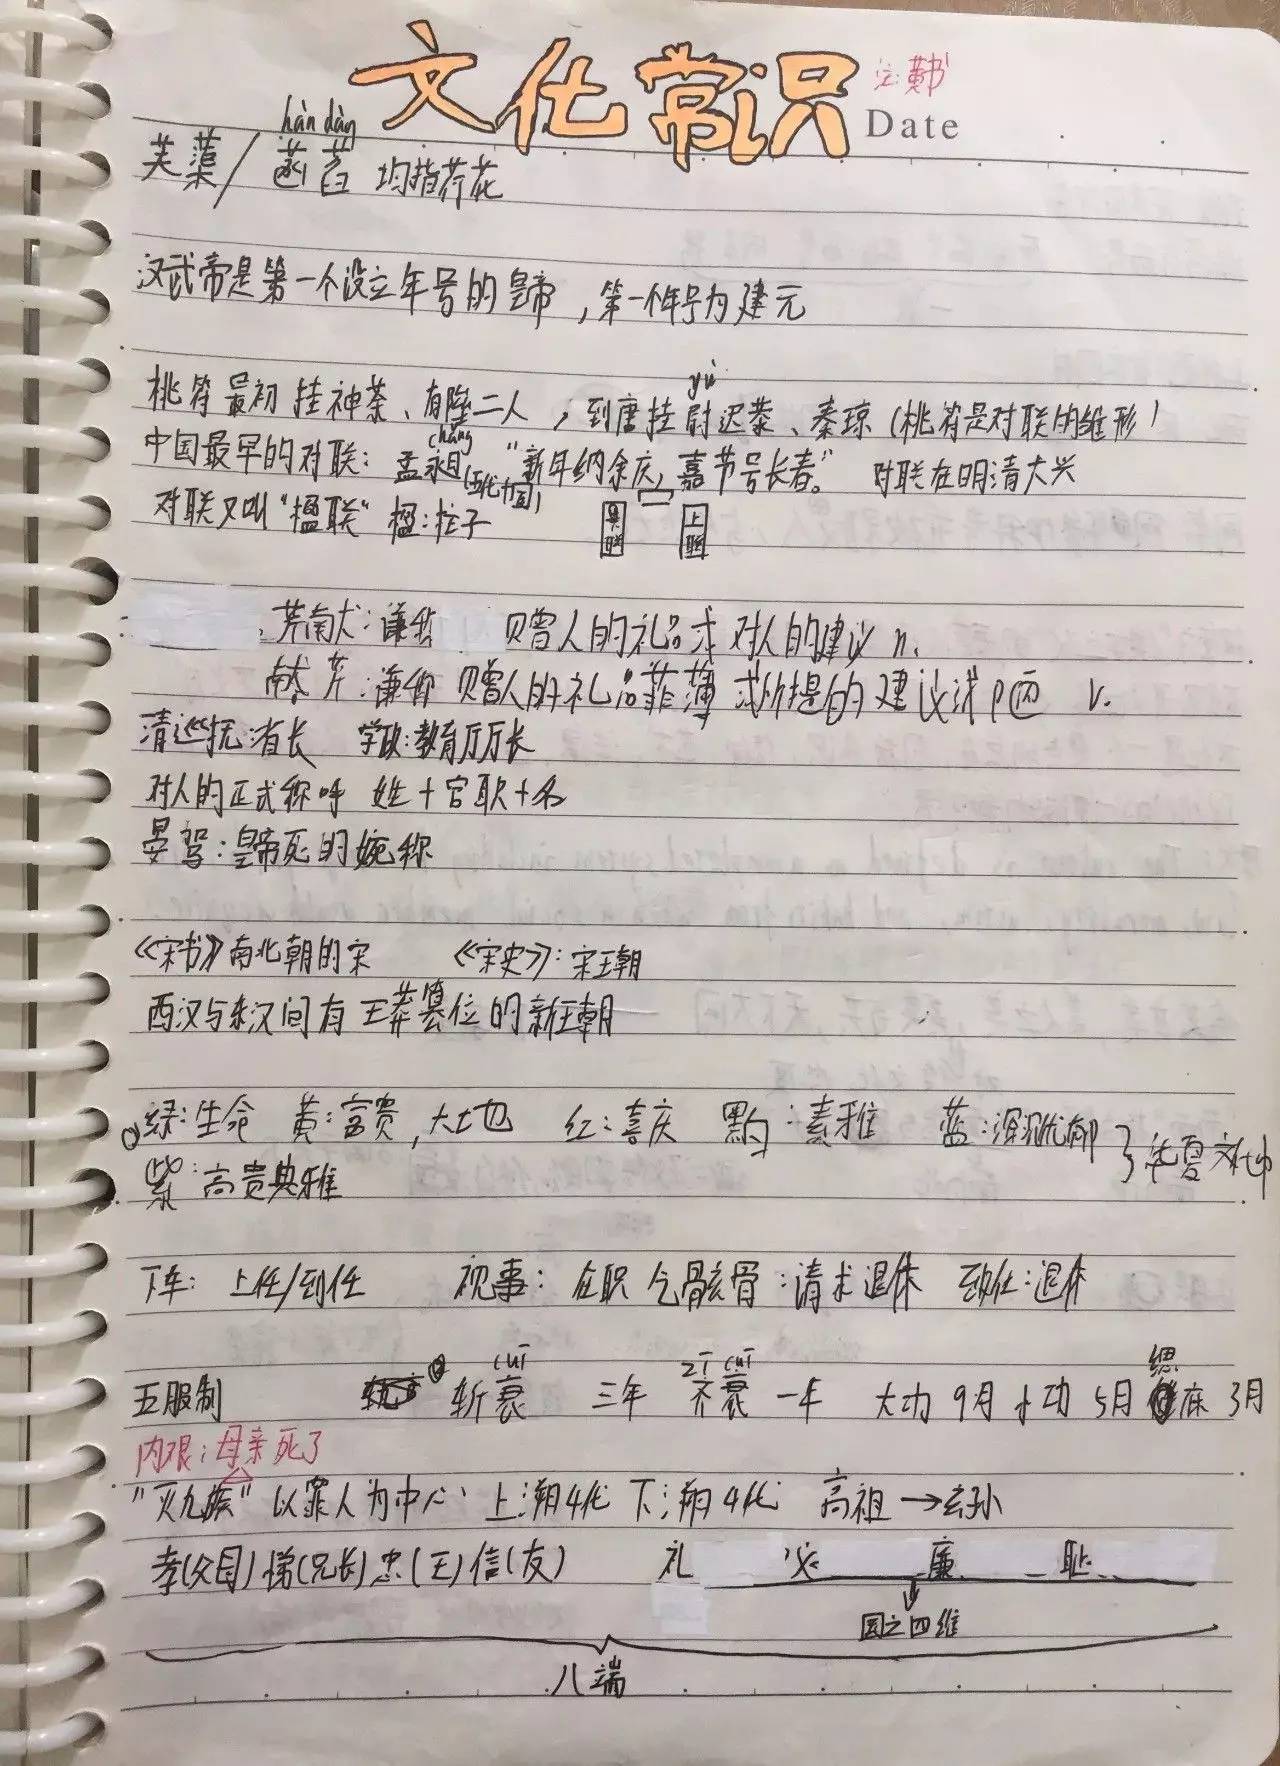 文化常识
注:黄书
Date
hàn dàn
芙蕖/菡萏 均指荷花
汉武帝是第一个设立年号的皇帝,第一个年号为建元
yù
桃符最初挂神荼、有陸二人,到唐挂尉迟恭、秦琼(桃符是对联的雏形)
chǎng
中国最早的对联:孟永昶(五代十国)"新年纳余庆,嘉节号长春。" 对联在明清大兴
对联又叫"楹联" 楹:柱子
上联
芹献:谦称 赠人的礼品或对人的建议 n.
献芹:谦称 赠人的礼品菲薄或所提的建议浅陋 v.
清巡抚:省长 学政:教育厅厅长
对人的正式称呼 姓+官职+名
晏驾:皇帝死的婉称
《宋书》南北朝的宋 《宋史》:宋王朝
西汉与东汉间有王莽篡位的新王朝
绿:生命 黄:富贵,大地 红:喜庆 黑白:素雅 蓝:深沉忧郁 } 华夏文化中
紫:高贵典雅
下车:上任/到任 视事:在职 乞骸骨:请求退休 致仕:退休
cuī zī cuī
五服制 斩衰 三年 齐衰 一年 大功 9月 小功 5月 缌麻 3月
内艰:母亲死了
"灭九族"以罪人为中心 上溯4代 下溯4代 高祖→玄孙
孝(父母)悌(兄长)忠(王)信(友) 礼 义 廉 耻
国之四维
八端